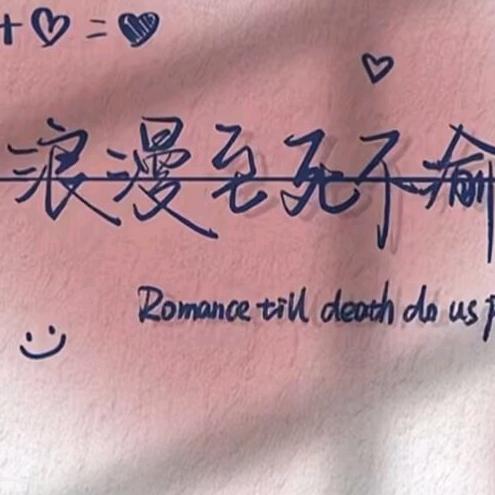 + ♡ = ♥
浪漫至死不渝
Romance till death do us p